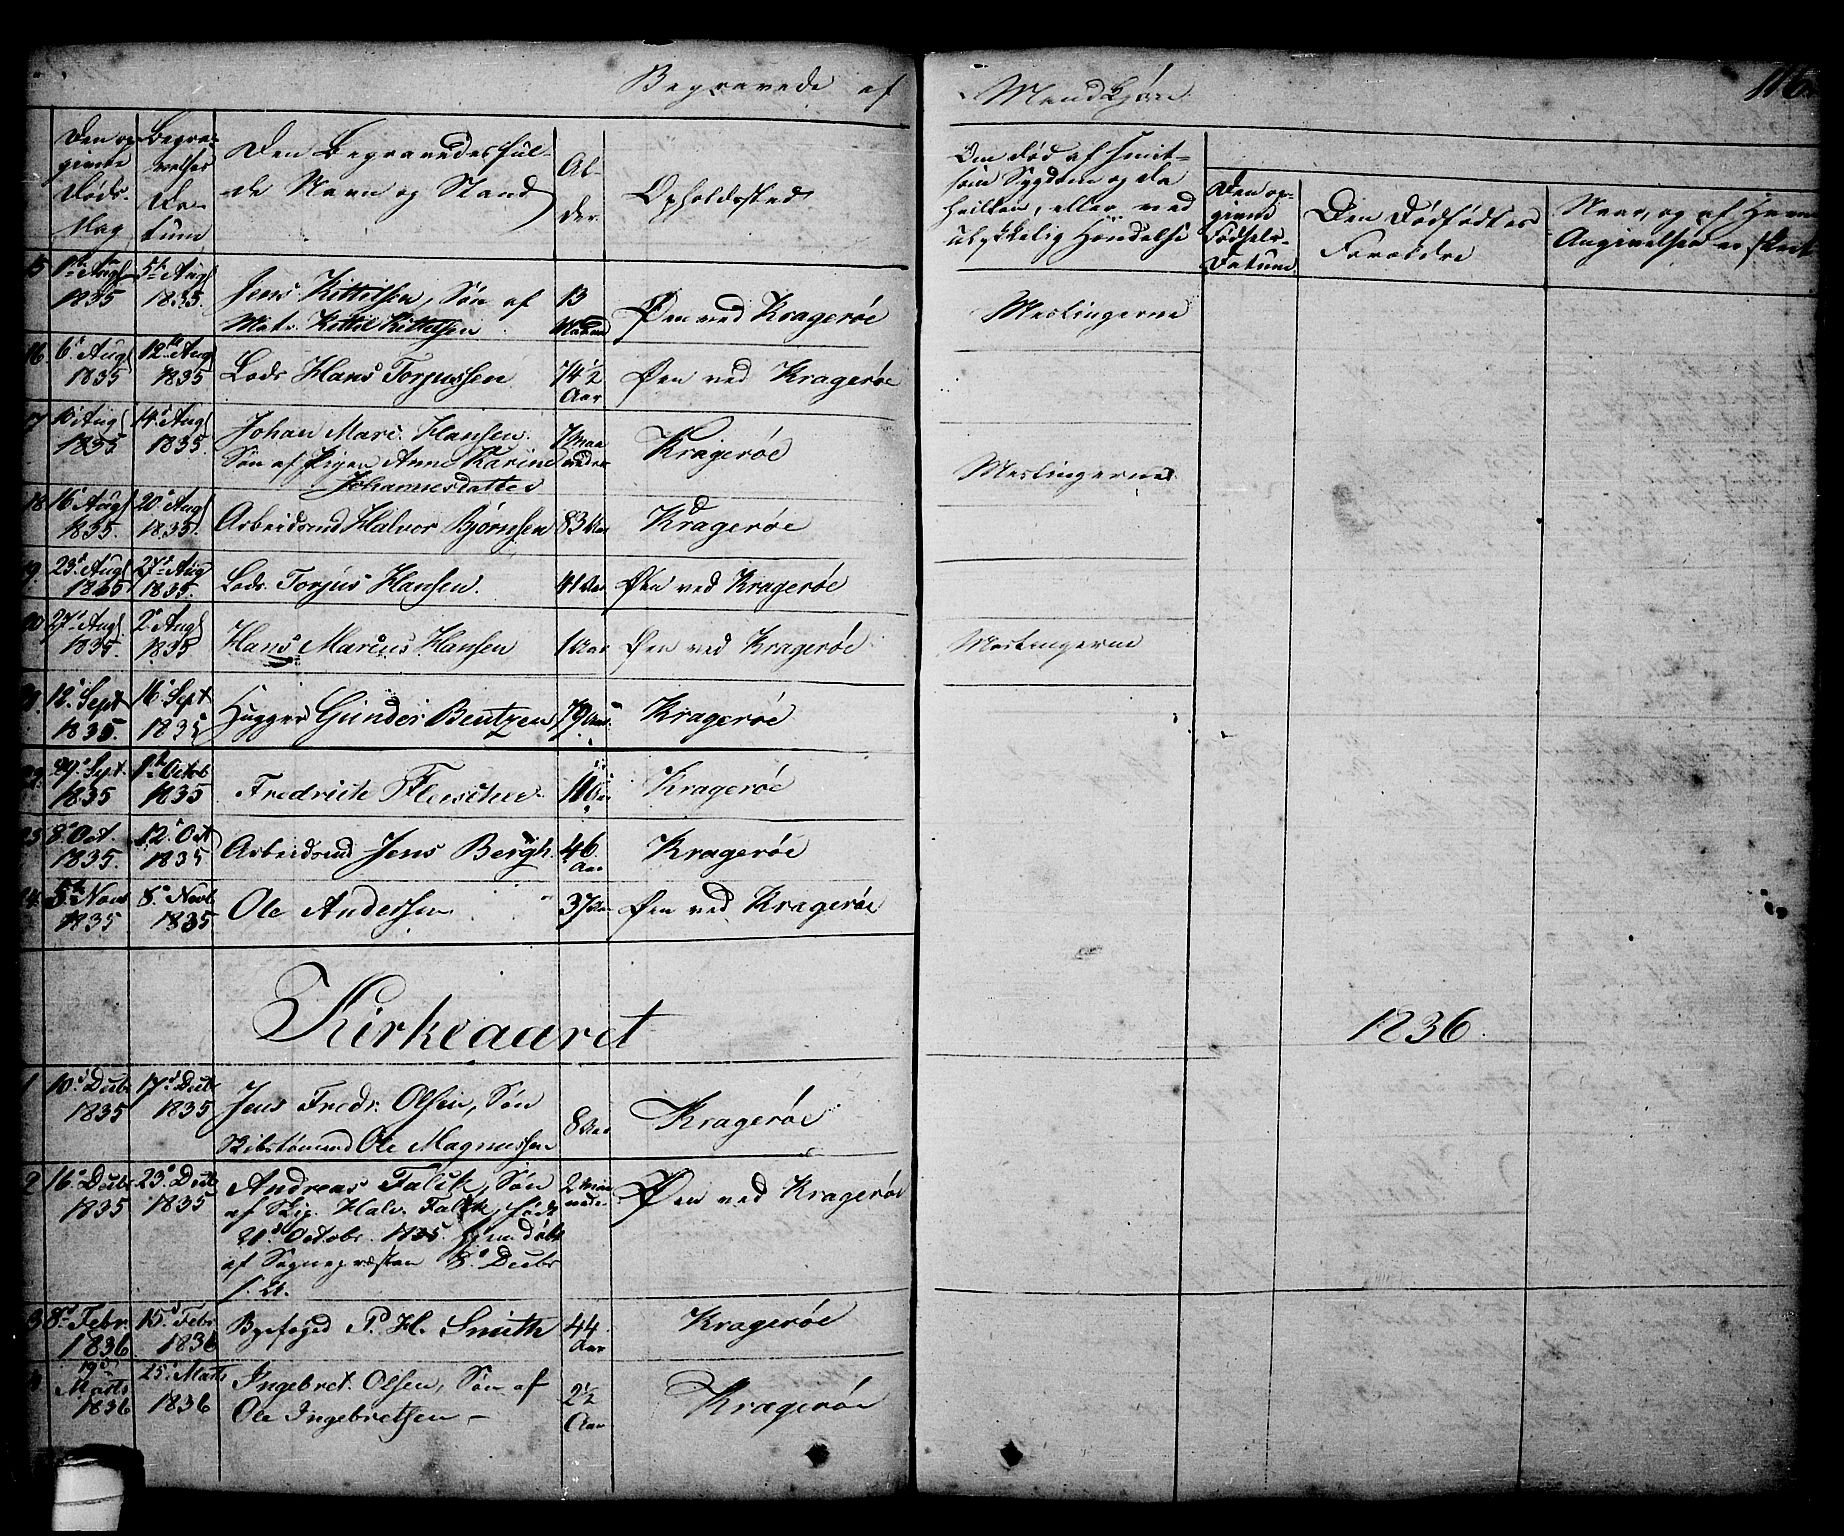 Begravede af Mandkjøn 116
Den opgivne Døds-Dag
Begravelses Datum
Den Begravedes fulde Navn og Stand
Alder
Opholdssted
Om død af smitsom Sygdom og da hvilken, eller ved ulykkelig Hændelse
Den opgivne Fødsels-Datum
Den Dødfødtes Forældre
Naar, og af hvem Angivelsen er skeet
15 1te Aug 1835 5te Aug 1835. Jens Kittelsen, Søn af Mat. Kittel Kittelsen 13 Øen ved Kragerøe Meslingerne
16. 6te Aug 1835 12te Aug 1835 Lods Hans Torjussen 74½ Aar Øen ved Kragerøe
17 Aug 1835 14 Aug 1835. Johan Mari. Hansen. Søn af Pigen Anne Karine Johannesdatter 7 Maaneder Kragerøe Meslingerne
18 16 Aug 1835. 20 Aug 1835. Arbeidsmd Halvor Bjørnsen 83 Aar Kragerøe
19. 23 Aug 1835 27 Aug 1835. Lods Torjus Hansen. 41 Aar Øen ved Kragerøe
20 27 Aug 1835. 2 Aug 1835 Hans Marius Hansen 1 Aar Øen ved Kragerøe Meslingerne
21. 12 Sept 1835. 16 Sept 1835 Hugger Gunder Bentzen 79 Aar Kragerøe
22. 29 Sept. 1835 1te Octob 1835 Fredrich 11 Kragerøe
23 8 Oct. 1835. 12 Oct 1835 Arbeidsmd Jens Bergh. 46 Aar Kragerøe
24. 5te Novb 1835 8 Novb 1835 Ole Andersen 37 Aar Øen ved Kragerøe
Kirkeaaret 1836.
1 10 Decbr 1835 17 Decbr 1835 Jens Fredr. Olsen, Søn Skibstømmd Ole Magnussen 8 Aar Kragerøe
2 16 Decbr 1835 23 Decbr 1835 Andreas Falck, Søn
af Skip. Halv. Falck, født
21 Octobr. 1835. hjem. døbt
af Sognepræsten 8 Decbr
s. A. 2 Maaneder Øen ved Kragerøe
3 8 Febr. 1836 15 Febr. 1836 Byefoged P. H. Smith 44 Aar Kragerøe
4 19 Marts 1836 25 Marts 1836 Ingebret Olsen, Søn af Ole Ingebretsen – 2½ Aar Kragerøe